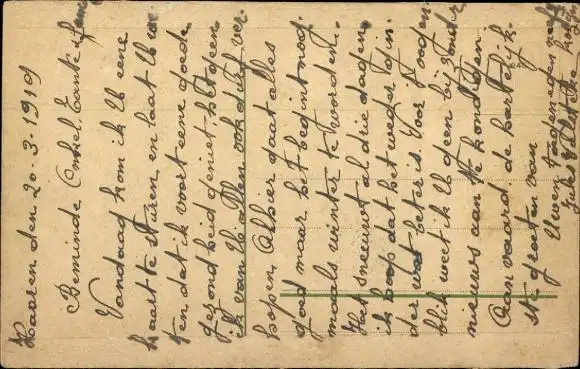 Haaren den 20-3-1919
Beminde Onkel, Tante &
Vandaag kom ik U eene
kaart te sturen, en laat U we-
ten dat ik voort eene goede
gezondheid geniet, hetgeen
ik van U allen ook durf ver-
hopen. Alhier gaat alles
goed maar het begint nog-
maals winter te worden.
Het sneeuwt al drie dagen,
ik hoop dat het weder gin-
der wat beter is. Voor 't oogen-
blik weet ik U geen bijzonder
nieuws aan te kondigen.
Aanvaard de hartelijk-
ste groeten van
Uwen toegenegen neef
Jules